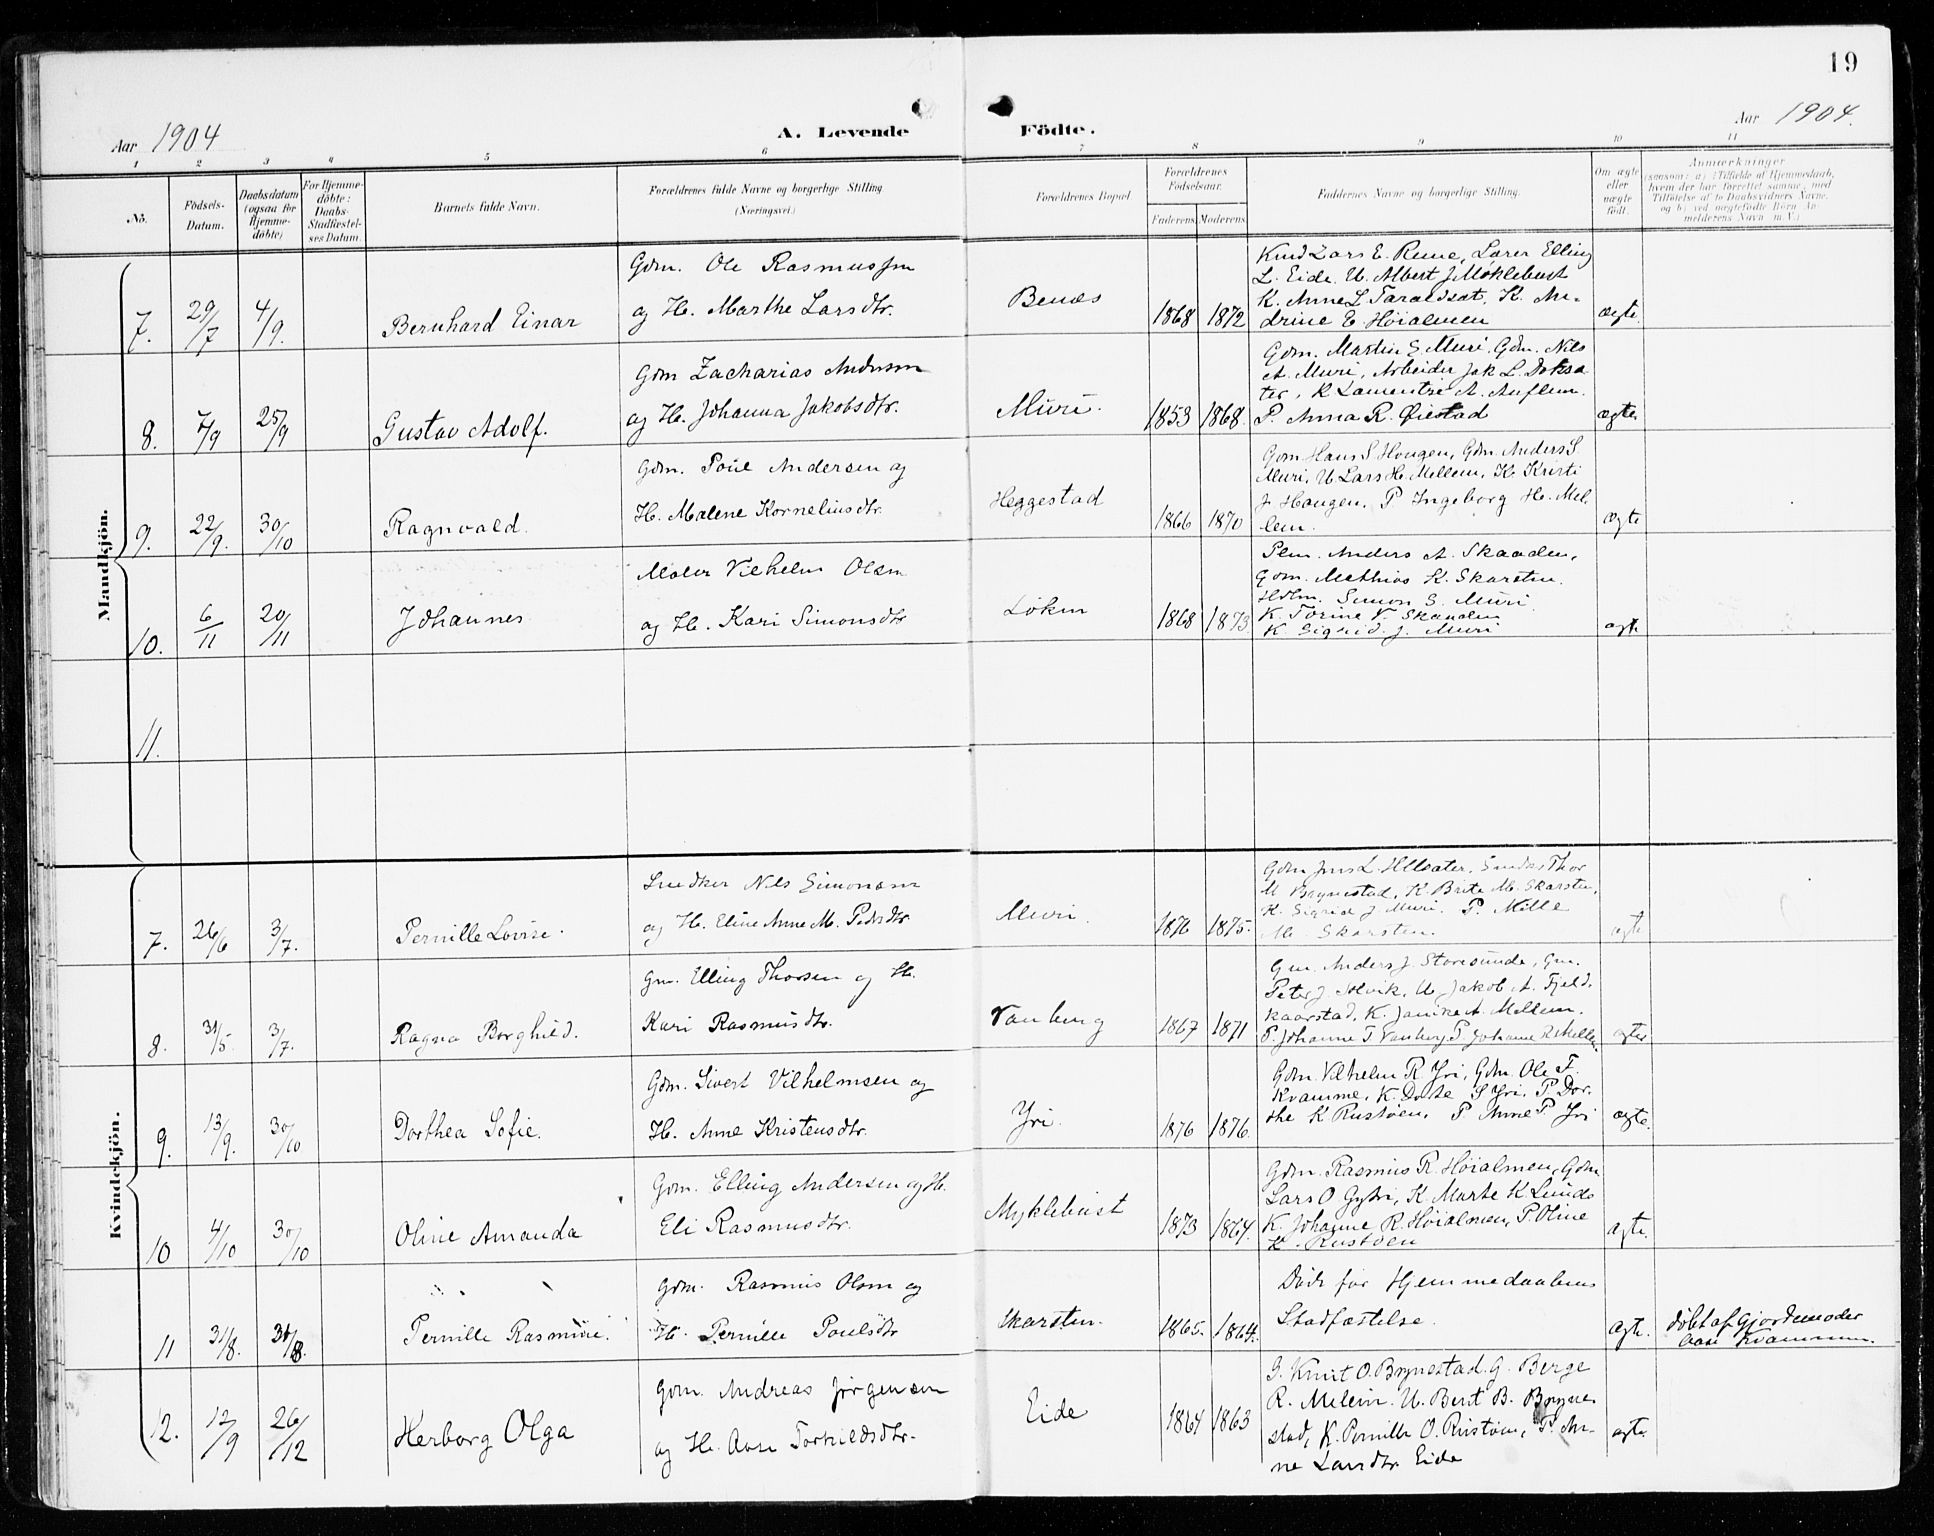 19
Aar 1904
A. Levende
Födte.
Aar 1904.
1 2 3 4 5 6 7 8 9 10 11
No.
Födsels-Datum.
Daabsdatum (ogsaa for Hjemme-döbte)
For Hjemme-döbte: Daabs-Stadfæstel-ses Datum.
Barnets fulde Navn.
Forældrenes fulde Navne og borgerlige Stilling
(Næringsvei.)
Forældrenes Bopæl
Forældrenes Födselsaar.
Faderens
Moderens
Faddernes Navne og borgerlige Stilling.
Om ægte eller uægte födt.
Anmærkninger
(saasom: a) i Tilfælde af Hjemmedaab, hvem der har forrettet samme, med Tilföielse af to Daabsvidners Navne, og b) ved uægtefödte Börn An-melderens Navn m. V.)
Mandkjön.
7. 29/7 4/9. Bernhard Einar
Gdm. Ole Rasmussen
og H. Marthe Larsdtr.
Benæs
1868 1872
Lars E. Rune, Lærer Elling
L. Eide. U. Albert J Myklebust
K. Anne L Taraldsæt, K. An-
drine E Høialmen
ægte.
8. 7/9 25/9 Gustav Adolf.
Gdm Zacharias Andersen
og H. Johanna Jakobsdtr.
Muri.
1853 1868.
Gdm. Martin S. Muri, Gdm. Nils
A. Muri, Arbeider Jak L.
A. Auflem.
P. Anna R. Øiestad
ægte
9. 22/9. 30/10 Ragnvald.
Gdm. Poul Andersen og
H. Malene Kornelius dtr.
Heggestad
1866 1870
Gdm Hans S Hougen, Gdm. Anders S
Muri, U Lars H. Mellem, K. Kristi
J Hougen. P Ingeborg H. Mel-
lem.
ægte
10. 6/11 20/11 Johannes
Maler Vilhelm Olsen
og H. Kari Simonsdtr
Løken
1868 1873
Anders A. Skaaden,
Gdm. Mathias K. Skarsten.
Simon S. Muri.
K. Torine V. Skaaden
K Sigrid J. Muri
ægte
11.
Kvindekjön.
7. 26/6 3/7. Pernille Lovise.
Snedker Nils Simonsen
og H. Eline Anne M. Pedersdtr
Muri
1876 1875.
Gdm Jens L Thor
M Brynestad, K. Brite M. Skarsten,
K. Sigrid J. Muri. P. Mille
M. Skarsten.
ægte
8. 31/5. 3/7. Ragna Borghild.
Gm. Elling Thorsen og H.
Kari Rasmusdtr.
Vanberg
1867 1871
Gm. Anders J. Storesunde, Gm.
Peter J. Solvik, U Jakob A. Fjeld.
kaarstad, K. Janike A. Mellem.
P. Johanne T Vanberg P. Johanne R Mellem
ægte
9. 13/9. 30/10 Dorthea Sofie.
Gdm. Sivert Vilhelmsen og
H. Anne Kristensdtr.
Yri.
1876 1876.
Gdm. Vilhelm R Yri, Gdm. Ole T.
Kvamme, K. Dorte S Yri, P Dor-
the K Rustøen, P Anne P Yri
ægte.
10 4/10 30/10 Oline Amanda
Gdm. Elling Andersen og H.
Eli Rasmusdtr.
Myklebust
1873 1864.
Gdm. Rasmus R. Høialmen, Gdm
Lars O Gytri, K Marte K Lunde
K. Johanne R. Høialmen, P. Oline
K. Rustøen
ægte.
11 31/8. 31/8. Pernille Rasmine.
Gdm. Rasmus Olsen og
H. Pernille Poulsdtr
Skarsten.
1865. 1864.
Død før Hjemmedaabens
Stadfæstelse.
ægte.
døbt af Gjordemoder
Kvammen.
12. 12/9 26/12 Herborg Olga
Gdm. Andreas Jørgensen
og H. Aase Torkildsdtr.
Eide
1864 1863
G. Knut O. Brynestad. G. Berge
R. Melem. U. Bert B. Bryne-
stad, K. Pernille O. Rustøen, P. An-
ne Larsdtr Eide
ægte.